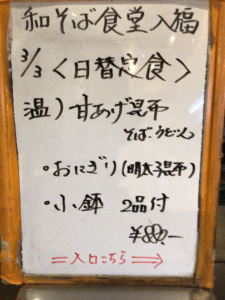 和そば食堂入福
3/3〈日替定食〉
温)甘あげ昆布
そば、うどん
・おにぎり(明太子昆布)
・小鉢 2品付
¥880.-
=入口こちら⇒